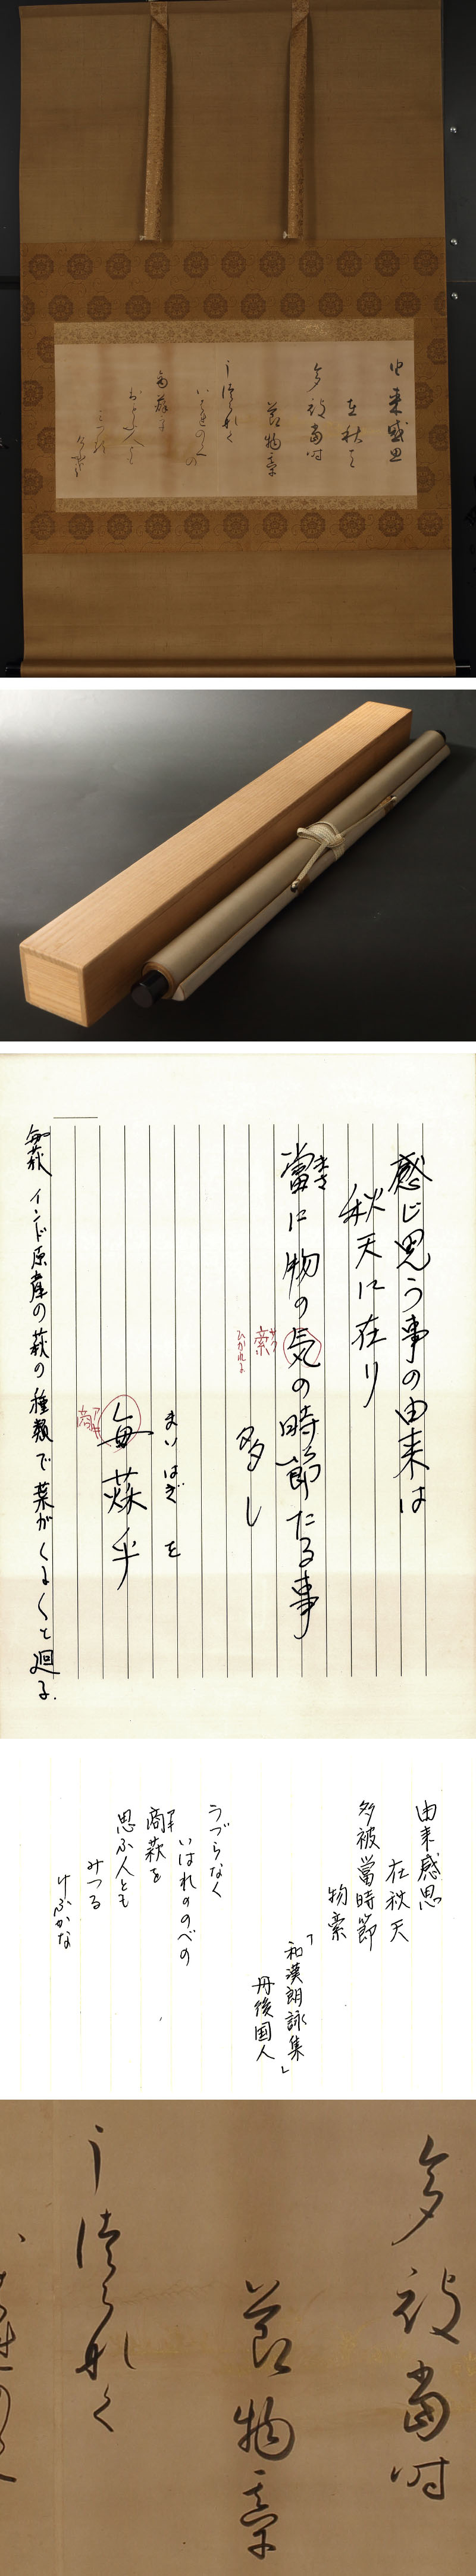 由来感思
在秋天
多被當時
節物牽
うつらなく
いはれのゝへの
感じ思う事の由来は
秋天に在り
まさ
當に物の気の時節たる事
索
ひかれる
多し
まいはぎを
毎萩乎
毎萩 インド原産の萩の種類で葉がくるくと廻る.
由来感思
在秋天
多被當時節
物索
「和漢朗詠集」
丹後国人
うづらなく
いはれののべの
商萩を
思ふ人とも
みつる
けふかな
多被當時
節物牽
うつらなく